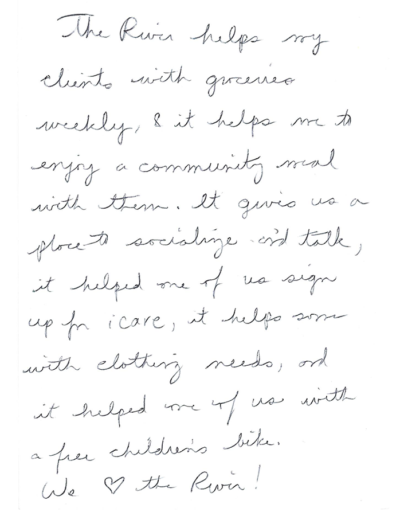 The River helps my
clients with groceries
weekly, & it helps me to
enjoy a community meal
with them. It gives us a
place to socialize and talk,
it helped one of us sign
up for icare, it helps some
with clothing needs, and
it helped one of us with
a free children's bike.
We ♡ the River!